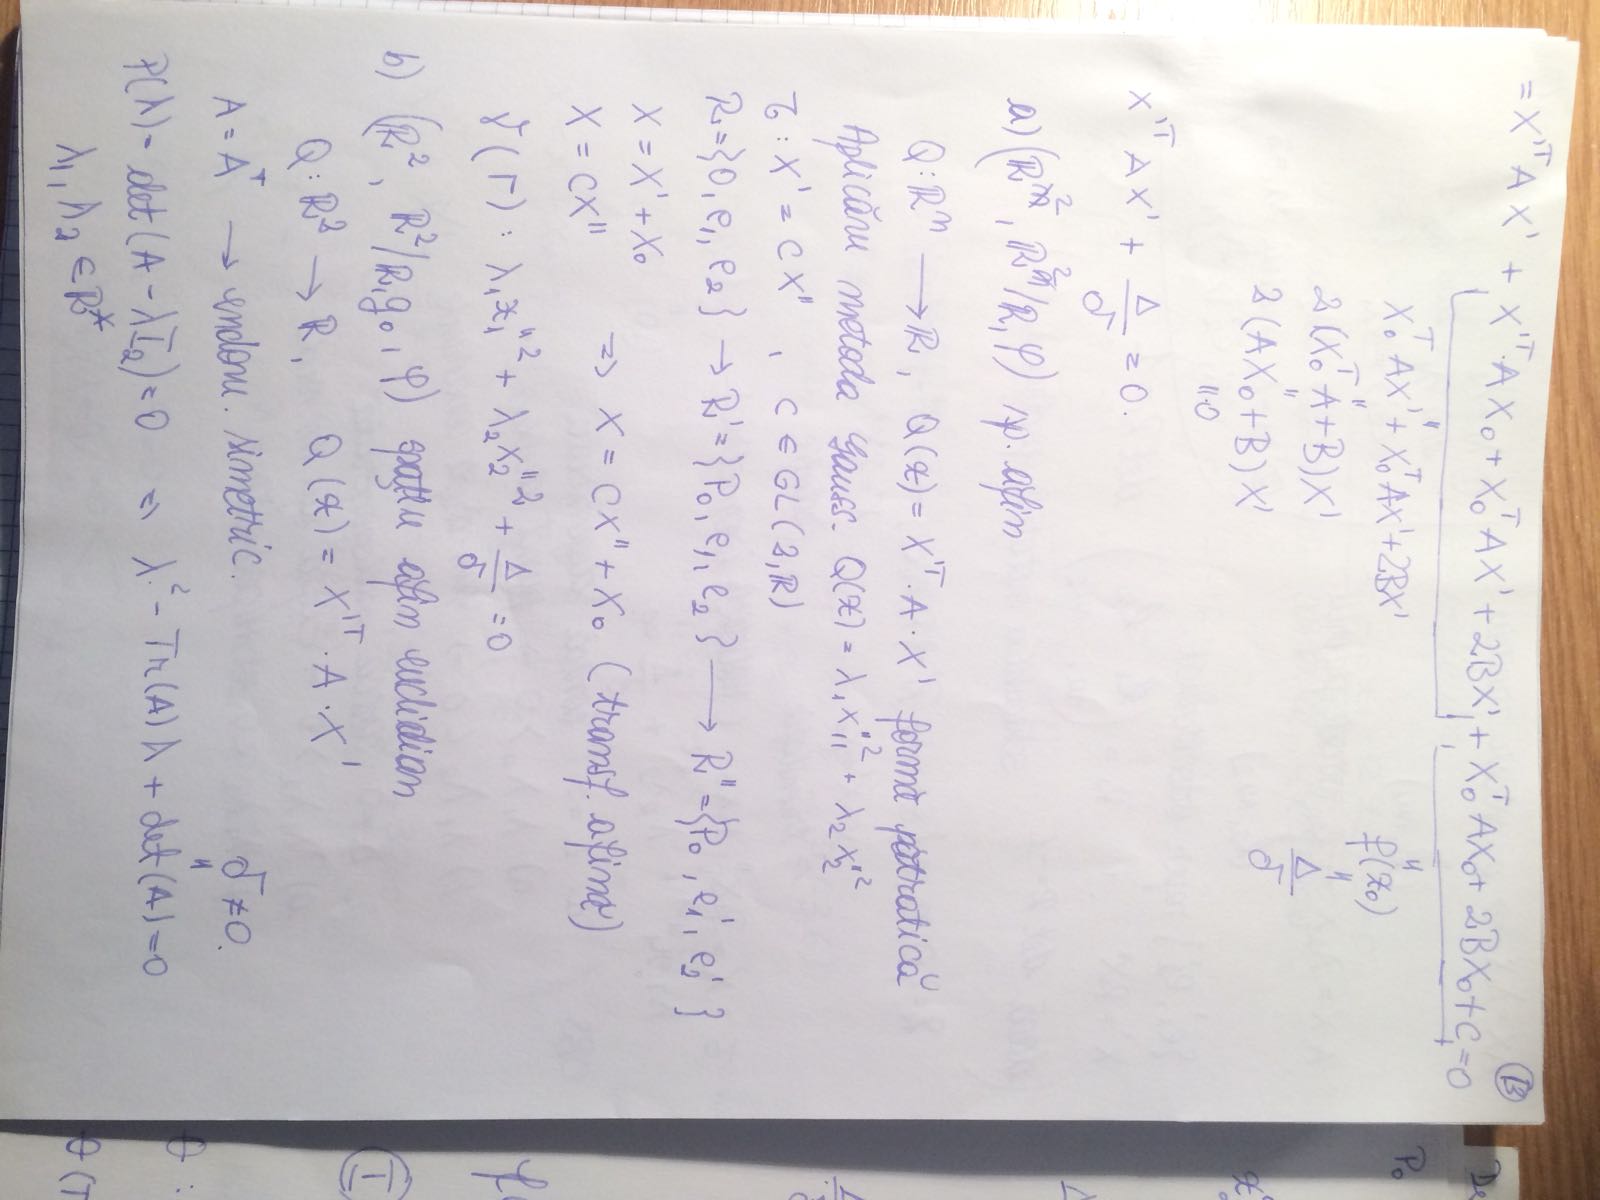 13
= X'ᵀ A X' + X'ᵀ·A X₀ + X₀ᵀ A X' + 2BX' + X₀ᵀ A X₀ + 2BX₀ + C = 0
X₀ᵀ A X' + X₀ᵀ A X' + 2BX'
f(x₀)
"
2(X₀ᵀ A + B) X'
"
Δ/δ
2(A X₀ + B) X'
" 0
X'ᵀ A X' + Δ/δ = 0.
a) (R², R²/R, φ) sp. afin
Q: Rⁿ → R, Q(x) = X'ᵀ · A · X' formă pătratică
Aplicăm metoda Gauss. Q(x) = λ₁ x₁"² + λ₂ x₂"²
τ : X' = C X" , C ∈ GL(2, R)
R = {0, e₁, e₂} → R' = {P₀, e₁, e₂} → R" = {P₀, e₁', e₂'}
X = X' + X₀
X = C X" ⇒ X = C X" + X₀ (transf. afină)
γ(Γ) : λ₁ x₁"² + λ₂ x₂"² + Δ/δ = 0
b) (R², R²/R, g₀, φ) spațiu afin euclidian
Q : R² → R, Q(x) = X'ᵀ · A · X'
A = Aᵀ → endom. simetric.
δ ≠ 0.
"
P(λ) = det(A - λI₂) = 0 ⇒ λ² - Tr(A) λ + det(A) = 0
λ₁, λ₂ ∈ R*
De
P₀
Δ
I
θ :
θ(T